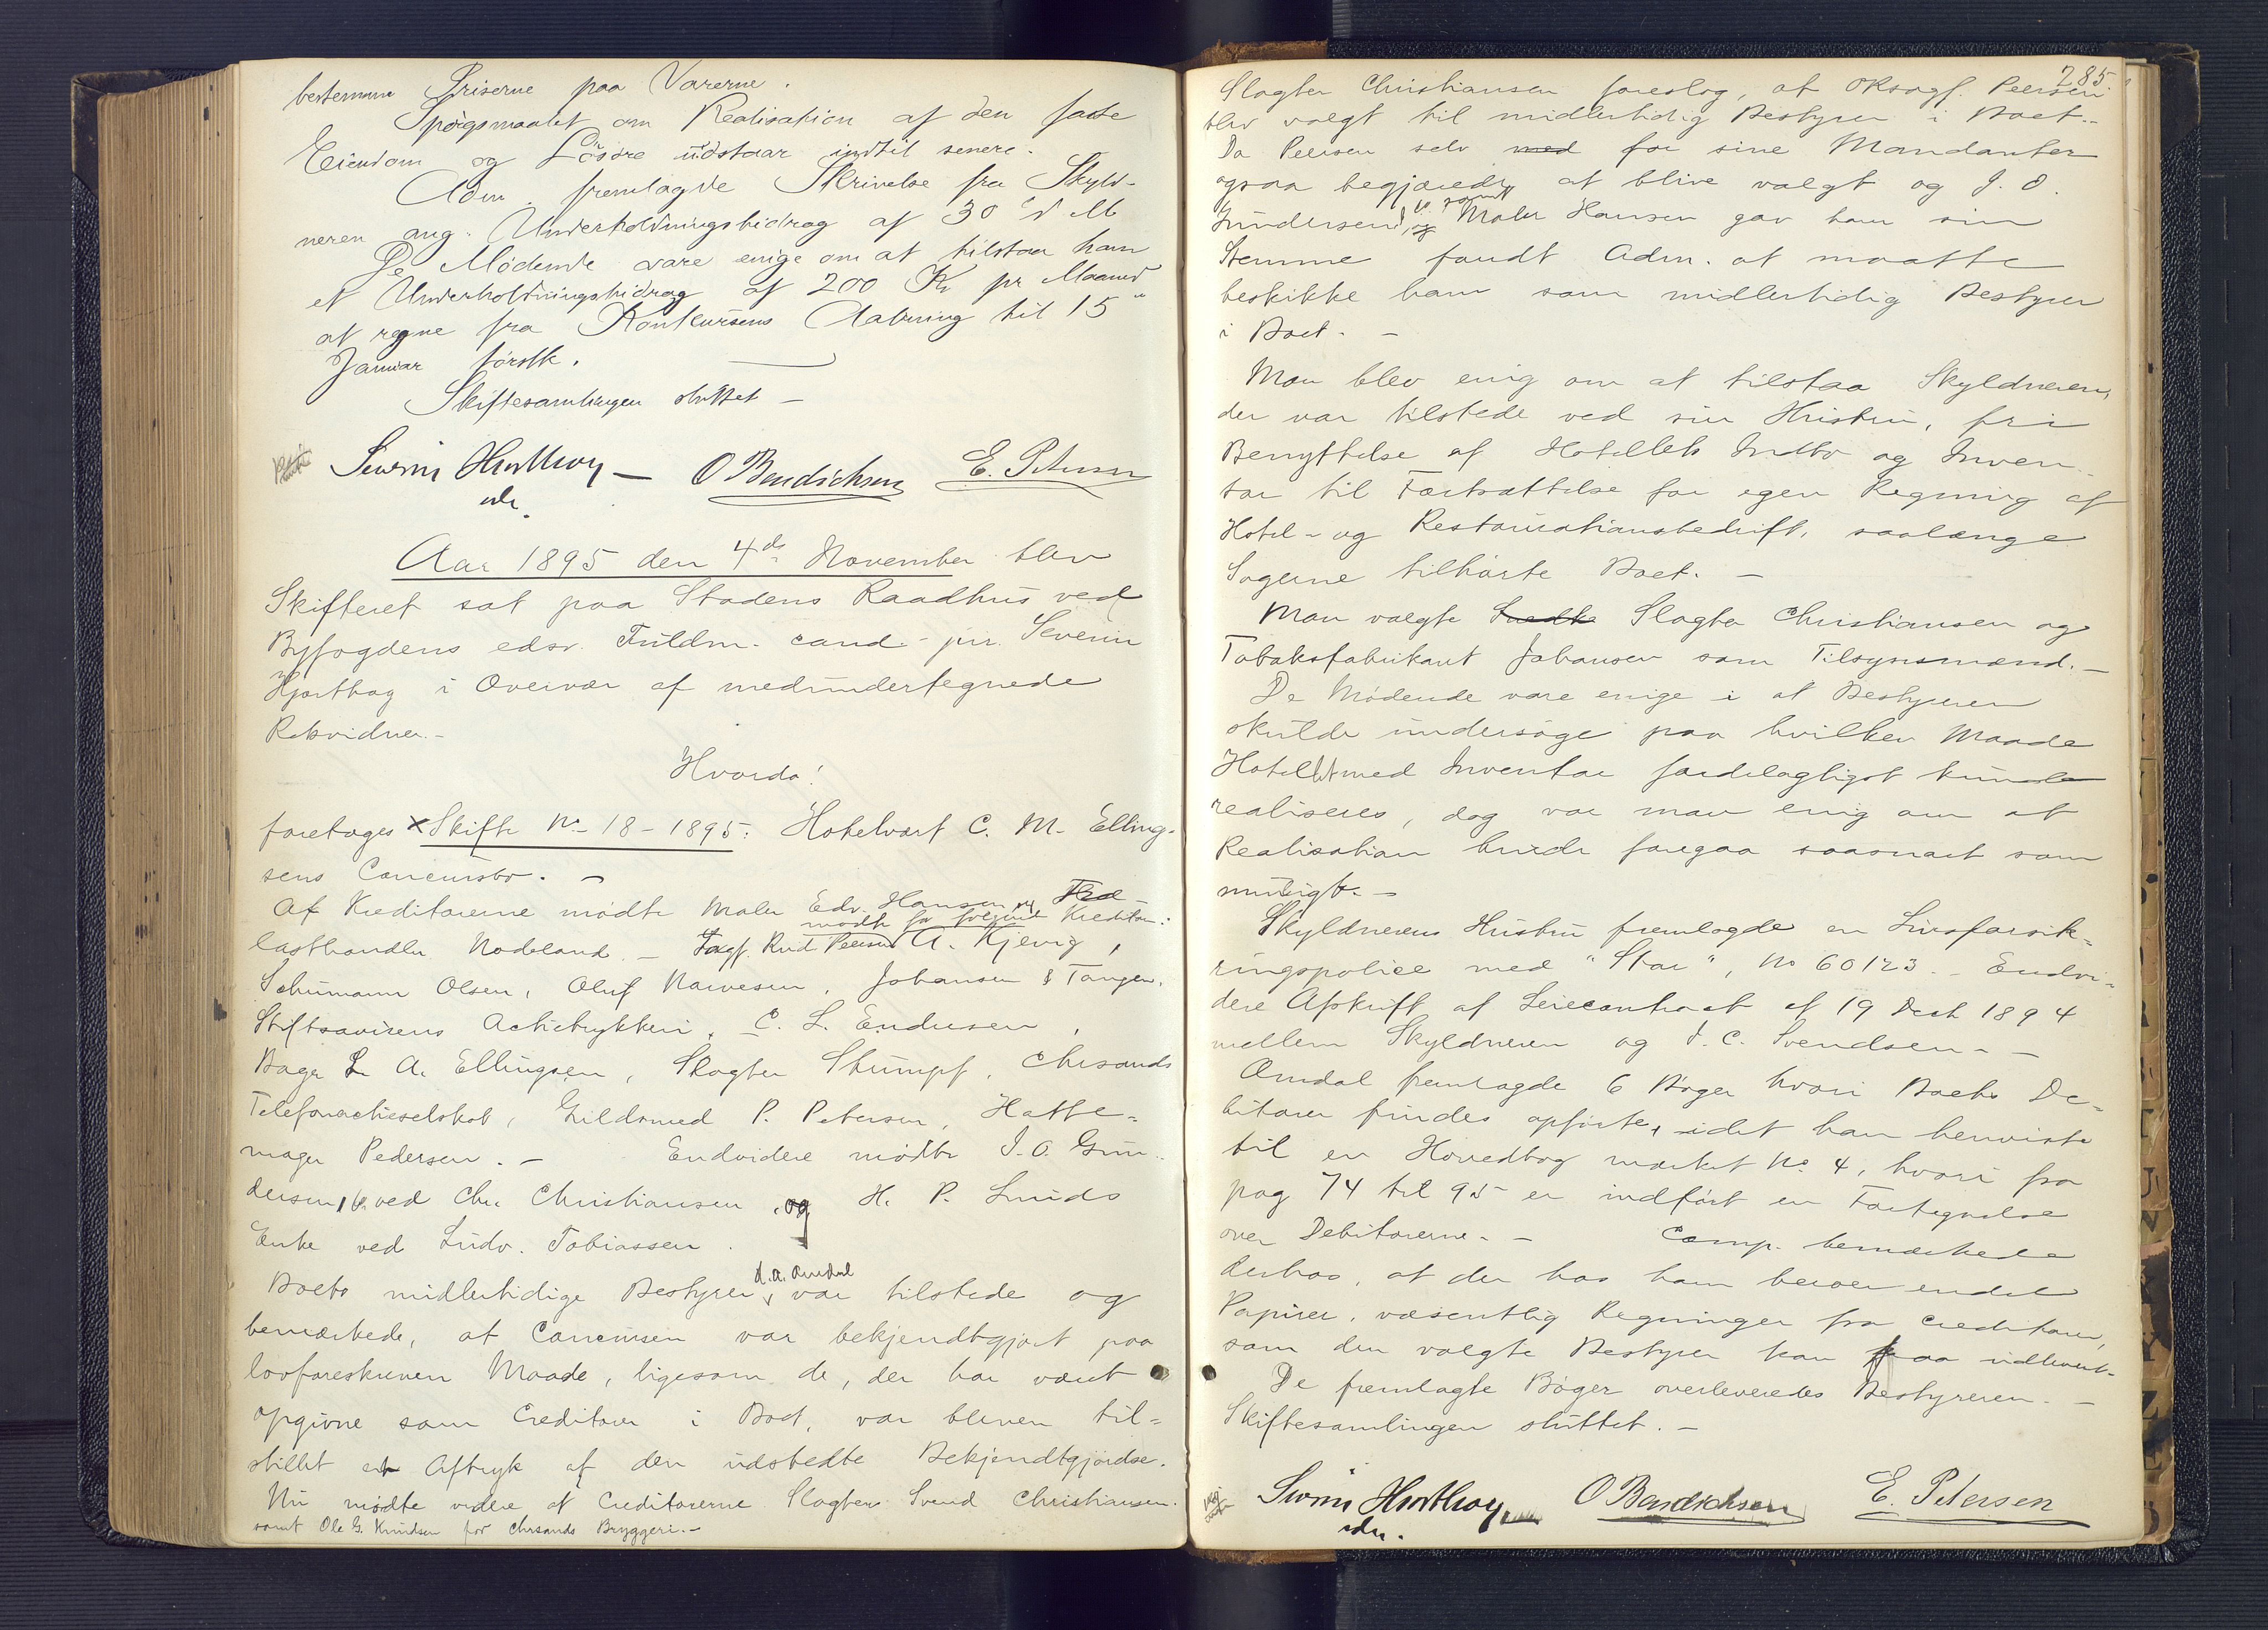 bestemme Priserne paa Varerne.
Spørgsmaalet om Realisation af den faste
Eiendom og Løsøre udstaar indtil senere.
Adm. fremlagde Skrivelse fra Skyld-
neren ang. Underholdningsbidrag af 30 d M
De Mødende vare enige om at tilstaa ham
et Underholdningsbidrag af 200 Kr pr Maaned
at regne fra Konkursens Aabning til 15
Januar førstk.
Skiftesamlingen sluttet —
Severin Hjorthoy — O Bendichsen E. Petersen
Aar 1895 den 4de November blev
Skifteret sat paa Stadens Raadhus ved
Byfogdens edsv. Fuldm. cand. jur. Severin
Hjorthoy i Overvær af medundertegnede
Retsvidner. —
Hvorda!
foretoges x Skifte No 18 - 1895: Hotelvært C. M. Elling-
sens Concursbo. —
Af Kreditorerne mødte Maler Edv. Hansen og Fed-
mødte for følgende Kreditor:
lasthandler Nodeland. — Sagf. Rud Peersen A. Kjevig,
Schumann Olsen, Oluf Narvesen, Johansen & Tangen,
Stiftsavisens Actietrykkeri, C. L. Endresen,
Bager L A. Ellingsen, Slagter Stumpf, Chrsands
Telefonactieselskab, Guldsmed P. Petersen, Hatte-
mager Pedersen. — Endvidere mødte J. O. Gun-
dersen ved Chr. Christiansen og H. P. Lunds
Enke ved Ludv. Tobiassen.
d. a. Omdal
Boets midlertidige Bestyrer var tilstede og
bemærkede, at Concursen var bekjendtgjort paa
lovforeskreven Maade, ligesom de, der har været
opgivne som Creditorer i Boet, var bleven til-
stillet et Aftryk af den udstedte Bekjendtgjørelse.
Nu mødte videre af Creditorerne Slagter Svend Christiansen
samt Ole G. Knudsen for Chrsands Bryggeri. —
285
Slagter Christiansen foreslog, at OKsagf. Peersen
blev valgt til midlertidig Bestyrer i Boet. —
Da Peersen selv med for sine Mandanter
ogsaa begjærede at blive valgt og J. O.
samt
Gundersen og Maler Hansen gav ham sin
Stemme fandt Adm. at maatte
beskikke ham som midlertidig Bestyrer
i Boet. —
Man blev enig om at tilstaa Skyldneren,
der var tilstede ved sin Hustru, fri
Benyttelse af Hotellets Indbo og Inven-
tar til Fortsættelse for egen Regning af
Hotel- og Restaurationsbedrift, saalænge
Sagerne tilhørte Boet. —
Man valgte Slagter Christiansen og
Tobaksfabrikant Johansen som Tilsynsmænd. —
De Mødende vare enige i at Bestyreren
skulde undersøge paa hvilken Maade
Hotellet med Inventar fordelagtigst kunde
realiseres, dog var man enig om at
Realisation burde foregaa saasnart som
muligt. —
Skyldnerens Hustru fremlagde en Livsforsik-
ringspolice med "Star", No 60123. — Endvi-
dere Afskrift af Leiecontract af 19 Decb 1894
mellem Skyldneren og J. C. Svendsen. —
Omdal fremlagde 6 Bøger hvori Boets De-
bitorer findes opførte, idet han henviste
til en Hovedbog mærket No 4, hvori fra
pag 74 til 95 er indført en Fortegnelse
over Debitorerne. — Comp. bemærkede
derhos, at der hos ham beroer endel
Papirer, væsentlig Regninger fra Creditorer,
som den valgte Bestyrer kan faa udleveret.
De fremlagte Bøger overleveredes Bestyreren. —
Skiftesamlingen sluttet. —
Severin Hjorthoy O Bendichsen E. Petersen